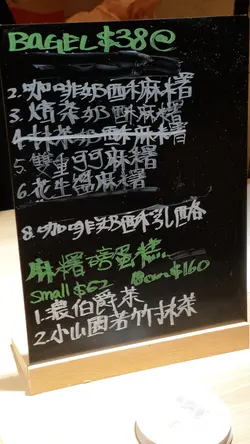 BAGEL $38@
2. 咖啡奶酥麻糬
3. 焙茶奶酥麻糬
4. 抹茶奶酥麻糬
5. 雙重可可麻糬
6. 花生醬麻糬
8. 咖啡奶酥乳酪
麻糬磅蛋糕
small $62 $160
1. 濃伯爵茶
2. 小山園若竹抹茶